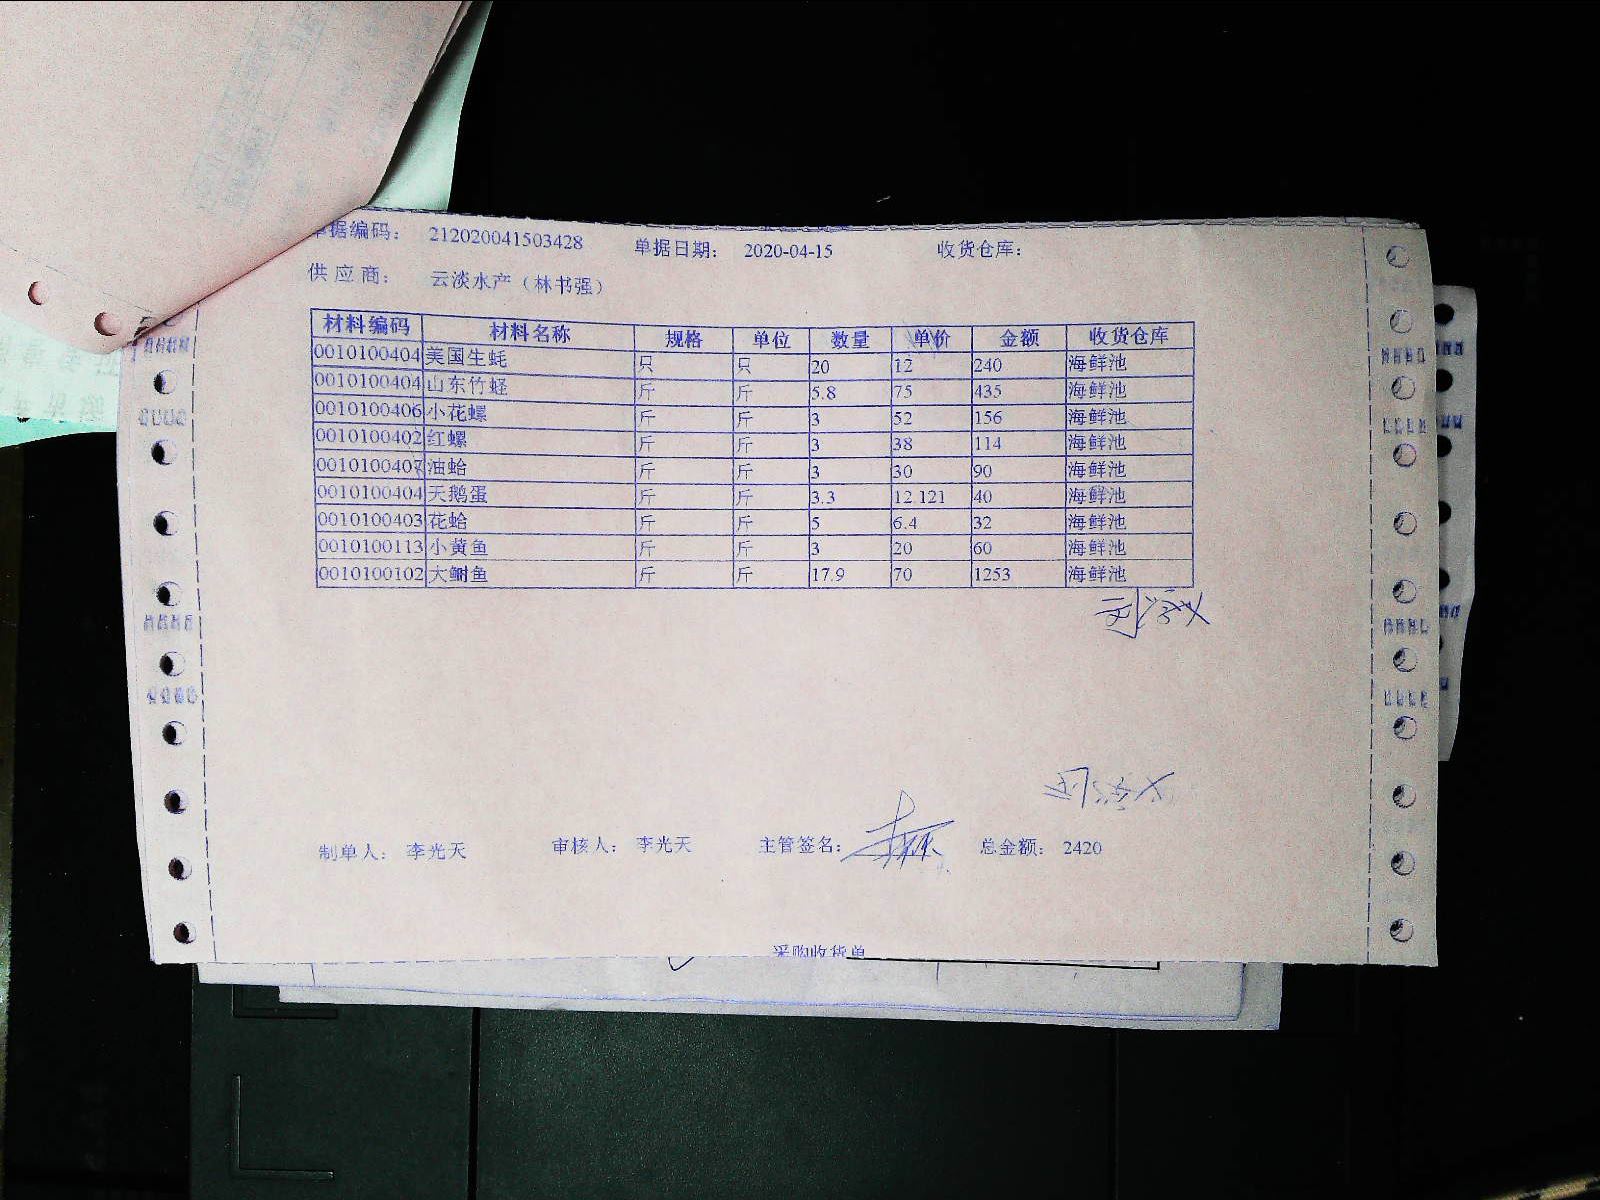 单据编码： 212020041503428 单据日期： 2020-04-15 收货仓库：
供应商： 云淡水产（林书强）
材料编码 材料名称 规格 单位 数量 单价 金额 收货仓库
0010100404 美国生蚝 只 只 20 12 240 海鲜池
0010100404 山东竹蛏 斤 斤 5.8 75 435 海鲜池
0010100406 小花螺 斤 斤 3 52 156 海鲜池
0010100402 红螺 斤 斤 3 38 114 海鲜池
0010100407 油蛤 斤 斤 3 30 90 海鲜池
0010100404 天鹅蛋 斤 斤 3.3 12.121 40 海鲜池
0010100403 花蛤 斤 斤 5 6.4 32 海鲜池
0010100113 小黄鱼 斤 斤 3 20 60 海鲜池
0010100102 大鲥鱼 斤 斤 17.9 70 1253 海鲜池
制单人： 李光天 审核人： 李光天 主管签名： 总金额： 2420
采购收货单